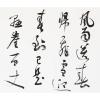 風雨送春
歸飛雪迎
春到已是
懸崖百丈